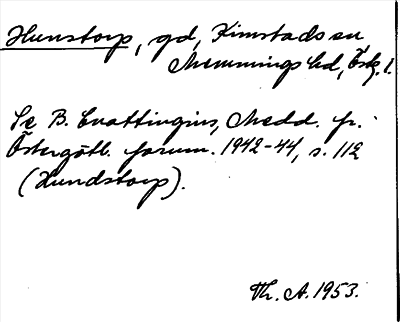 Hunstorp, gd, Kimstads sn
Memmings hd, Östg. l.
Se B. Cnattingius, Medd. fr.
Östergötl. fornm. 1942-44, s. 112
(Hundstorp).
Th. A. 1953.